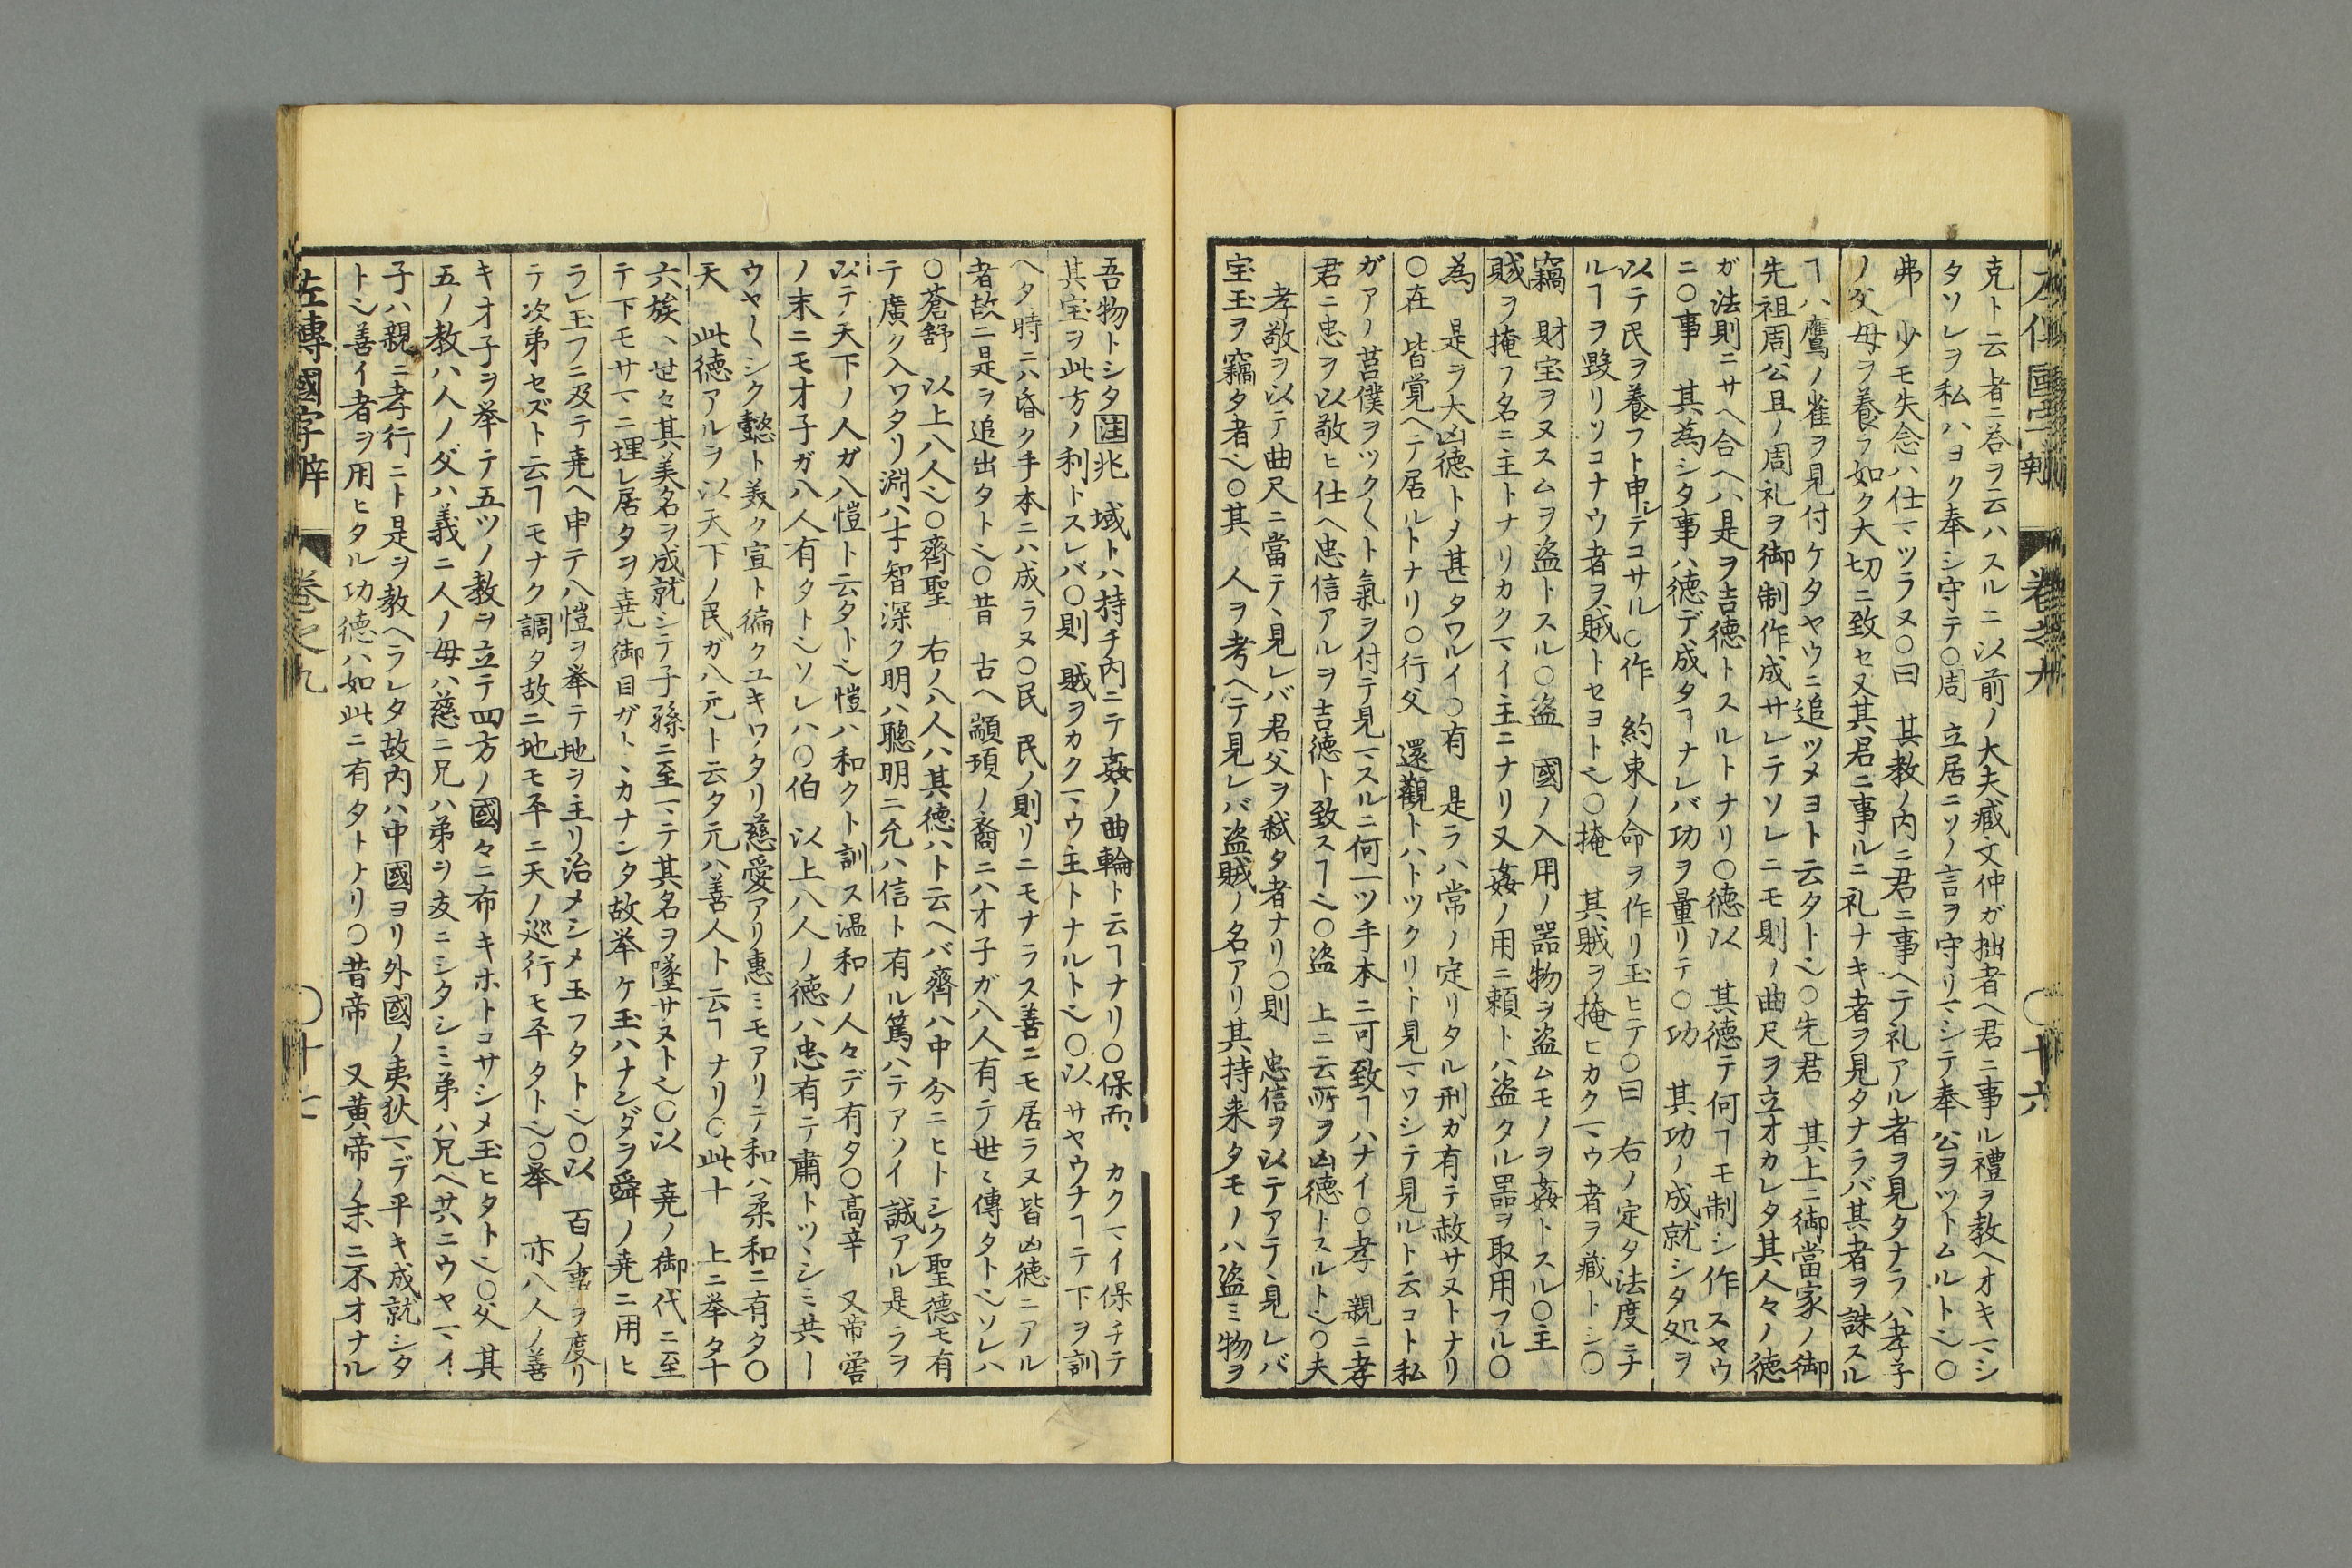 克ト云者ニ答ヲ云ハスルニ以前ノ大夫臧文仲ガ拙者ヘ君ニ事ル禮ヲ教ヘオキマシ
タソレヲ私ハヨク奉シ守テ〇周　立居ニソノ言ヲ守リマシテ奉公ヲツトムルトヘ〇
弗　少モ失念ハ仕マツラヌ〇曰　其教ノ内ニ君ニ事ヘテ礼アル者ヲ見タナラハ孝子
ノ父母ヲ養フ如ク大切ニ致セ又其君ニ事ルニ礼ナキ者ヲ見タナラバ其者ヲ誅スル
ヿハ鷹ノ雀ヲ見付ケタヤウニ追ツメヨト云タトヘ〇先君　其上ニ御當家ノ御
先祖周公且ノ周礼ヲ御制作成サレテソレニモ則ノ曲尺ヲ立オカレタ其人々ノ徳
ガ法則ニサヘ合ヘハ是ヲ吉徳トスルトナリ〇徳以　其徳テ何ヿモ制シ作スヤウ
ニ〇事　其為シタ事ハ徳デ成タヿナレバ功ヲ量リテ〇功　其功ノ成就シタ処ヲ
以テ民ヲ養フト申シテコサル〇作　約束ノ命ヲ作リ玉ヒテ〇曰　右ノ定タ法度ニナ
ルヿヲ毀リソコナウ者ヲ賊トセヨトヘ〇掩　其賊ヲ掩ヒカクマウ者ヲ藏トシ〇
竊　財宝ヲヌスムヲ盗トスル〇盗　國ノ入用ノ器物ヲ盗ムモノヲ姦トスル〇主
賊ヲ掩フ名ニ主トナリカクマイ主ニナリ又姦ノ用ニ頼トハ盗タル器ヲ取用フル〇
為　是ヲ大凶徳トメ甚タワルイ〇有　是ラハ常ノ定リタル刑カ有テ赦サヌトナリ
〇在　皆覚ヘテ居ルトナリ〇行父　還觀トハトツクリト見マワシテ見ルト云コト私
ガアノ莒僕ヲツク〱ト氣ヲ付テ見マスルニ何一ツ手本ニ可致ヿハナイ〇孝　親ニ孝
君ニ忠ヲ以敬ヒ仕ヘ忠信アルヲ吉徳ト致スヿヘ〇盗　上ニ云所ヲ凶徳トスルトヘ〇夫
孝敬ヲ以テ曲尺ニ當テヽ見レバ君父ヲ弒タ者ナリ〇則　忠信ヲ以テアテヽ見レバ
宝玉ヲ竊タ者ヘ〇其　人ヲ考ヘテ見レバ盗賊ノ名アリ其持来タモノハ盗ミ物ヲ
卷之九　〇十六
吾物トシタ注兆　域トハ持チ内ニテ姦ノ曲輪ト云ヿナリ〇保而　カクマイ保チテ
其宝ヲ此方ノ利トスレバ〇則　賊ヲカクマウ主トナルトヘ〇以　サヤウナヿニテ下ヲ訓
ヘタ時ニハ昏ク手本ニハ成ラヌ〇民　民ノ則リニモナラス善ニモ居ラヌ皆凶徳ニアル
者故ニ是ヲ追出タトヘ〇昔　古ヘ顓頊ノ裔ニハ才子ガ八人有テ世ミ傳タトヘソレハ
〇蒼舒　以上八人ヘ〇齊聖　右ノ八人ハ其徳ハト云ヘバ齊ハ中分ニヒトシク聖徳モ有
テ廣ク入ワタリ淵ハ才智深ク明ハ聰明ニ允ハ信ト有ル篤ハテアツイ誠アル是ラヲ
以テ天下ノ人ガ八愷ト云タトヘ愷ハ和クト訓ス温和ノ人々デ有タ〇高辛　又帝嚳
ノ末ニモ才子ガ八人有タトヘソレハ〇伯　以上八人ノ徳ハ忠有テ肅トツヽシミ共ー
ウヤ〱シク懿ト美ク宣ト徧クユキワタリ慈愛アリ惠ミモアリテ和ハ柔和ニ有タ〇
天　此徳アルヲ以天下ノ民ガ八元ト云タ元ハ善人ト云ヿナリ〇此十　上ニ举タ十
六族ヽ世々其美名ヲ成就シテ子孫ニ至マテ其名ヲ墜サヌトヘ〇以　堯ノ御代ニ至
テ下モサマニ埋レ居タヲ堯御目ガトヽカナンタ故举ケ玉ハナンダラ舜ノ堯ニ用ヒ
ラレ玉フニ及テ堯ヘ申テ八愷ヲ举テ地ヲ主リ治メシメ玉フタトヘ〇以　百ノ事ヲ度リ
テ次弟セズト云ヿモナク調タ故ニ地モ平ニ天ノ巡行モ平タトヘ〇举　亦八人ノ善
キオ子ヲ举テ五ツノ教ヲ立テ四方ノ國々ニ布キホトコサシメ玉ヒタトヘ〇父　其
五ノ教ハ人ノ父ハ義ニ人ノ母ハ慈ニ兄ハ弟ヲ友ニシタシミ弟ハ兄ヘ共ニウヤマイ
子ハ親ニ孝行ニト是ヲ教ヘラレタ故内ハ中國ヨリ外國ノ夷狄マデ平キ成就シタ
トヘ善イ者ヲ用ヒタル功徳ハ如此ニ有タトナリ〇昔帝　又黄帝ノ末ニ不オナル
左傳國字辭　卷之九